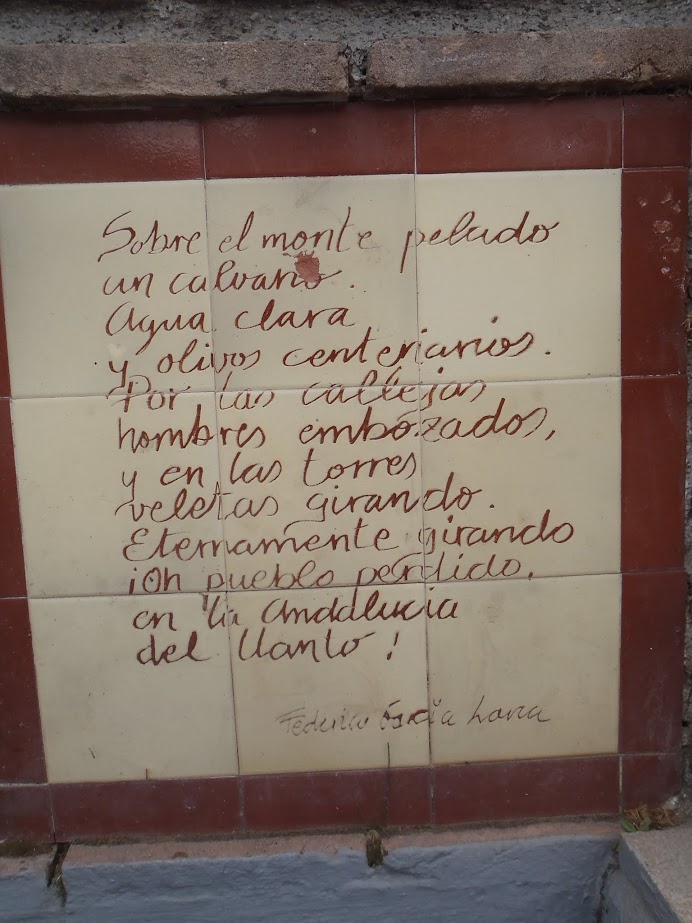 Sobre el monte pelado
un calvario.
Agua clara
y olivos centenarios.
Por las callejas
hombres embozados,
y en las torres
veletas girando.
Eternamente girando
¡Oh pueblo perdido,
en la Andalucia
del llanto!
Federico García Lorca